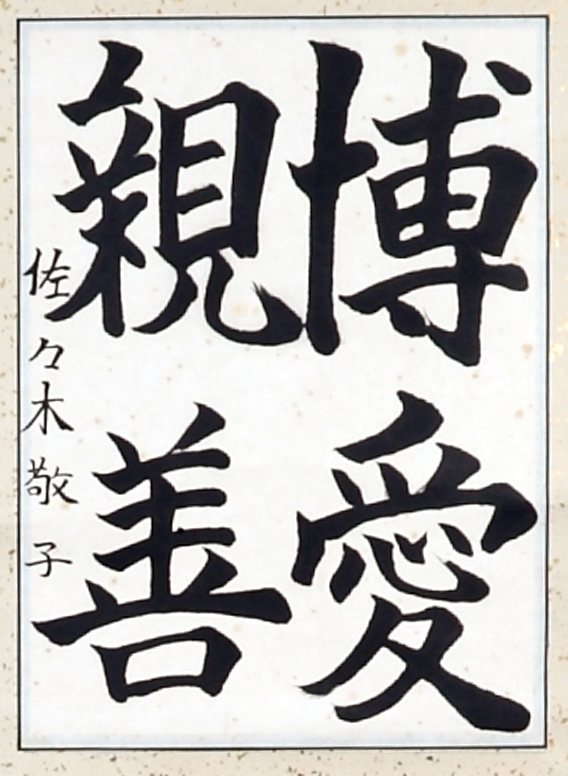 博愛
親善
佐々木敬子